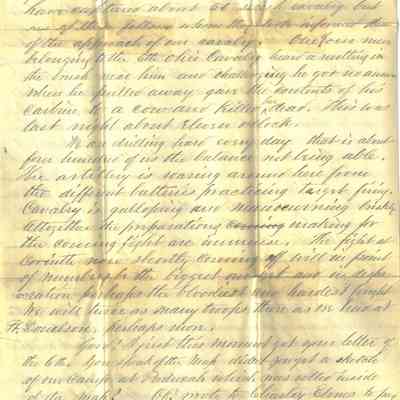 have captured about 60 rebel cavalry but
one of the fellows whom they took informed them
of the approach of our cavalry. One of our men
belonging to the 5th Ohio Cavalry heard a rustling in
the brush near him and challenging he got no answer
when he pulled away gave the contents of his
carbine to a cow and killed her dead. This was
last night about Eleven o'clock.
We are drilling hard every day that is about
four hundred of us the balance not being able.
The artillery is roaring around here from
the different batteries practicing target firing.
Cavalry is galloping and maneuvering briskly
altogether the preparations making for
the coming fight are immense. The fight at
Corinth now shortly coming off will in point
of numbers be the biggest and in desper
ation perhaps the bloodiest and hardest fought
We will have as many troops there as we had at
Ft. Donelson, perhaps more.
I just this moment got your letter of
the 6th. You speak of the map didn't you get a sketch
of our camp at Paducah which was rolled inside
of the map? wrote to Charley to pay